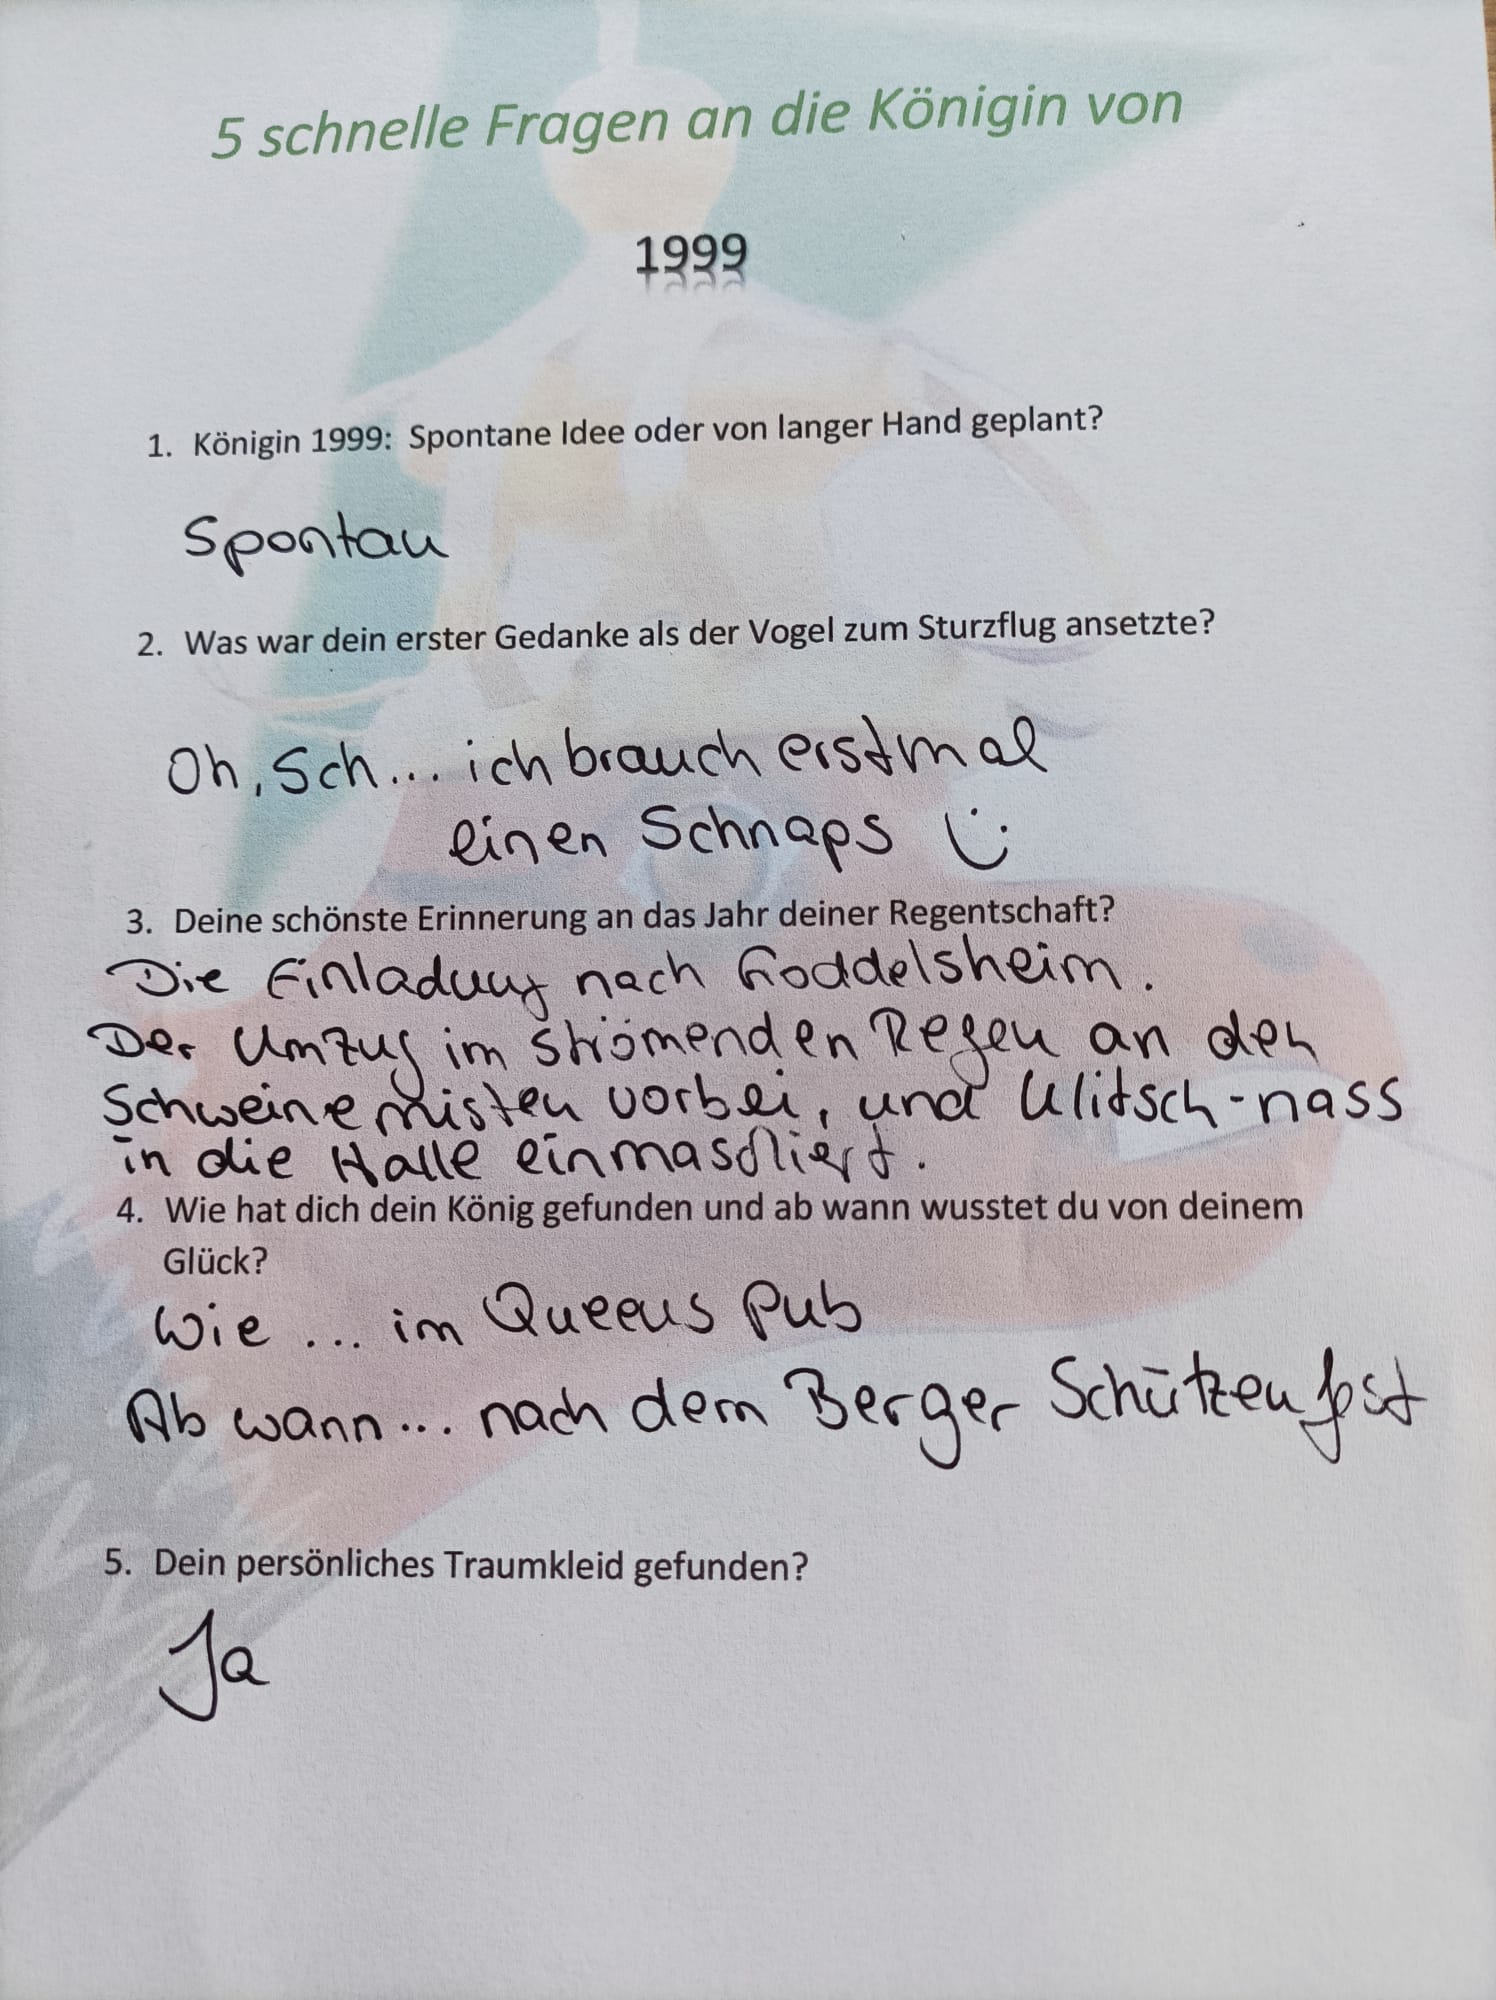 5 schnelle Fragen an die Königin von
1999
1. Königin 1999: Spontane Idee oder von langer Hand geplant?
Spontan
2. Was war dein erster Gedanke als der Vogel zum Sturzflug ansetzte?
Oh, Sch... ich brauch erstmal
einen Schnaps
3. Deine schönste Erinnerung an das Jahr deiner Regentschaft?
Die Einladung nach Goddelsheim.
Der Umzug im strömenden Regen an den
Schweinemisten vorbei, und klitsch-nass
in die Halle einmaschiert.
4. Wie hat dich dein König gefunden und ab wann wusstet du von deinem
Glück?
Wie ... im Queens Pub
Ab wann... nach dem Berger Schützenfest
5. Dein persönliches Traumkleid gefunden?
Ja